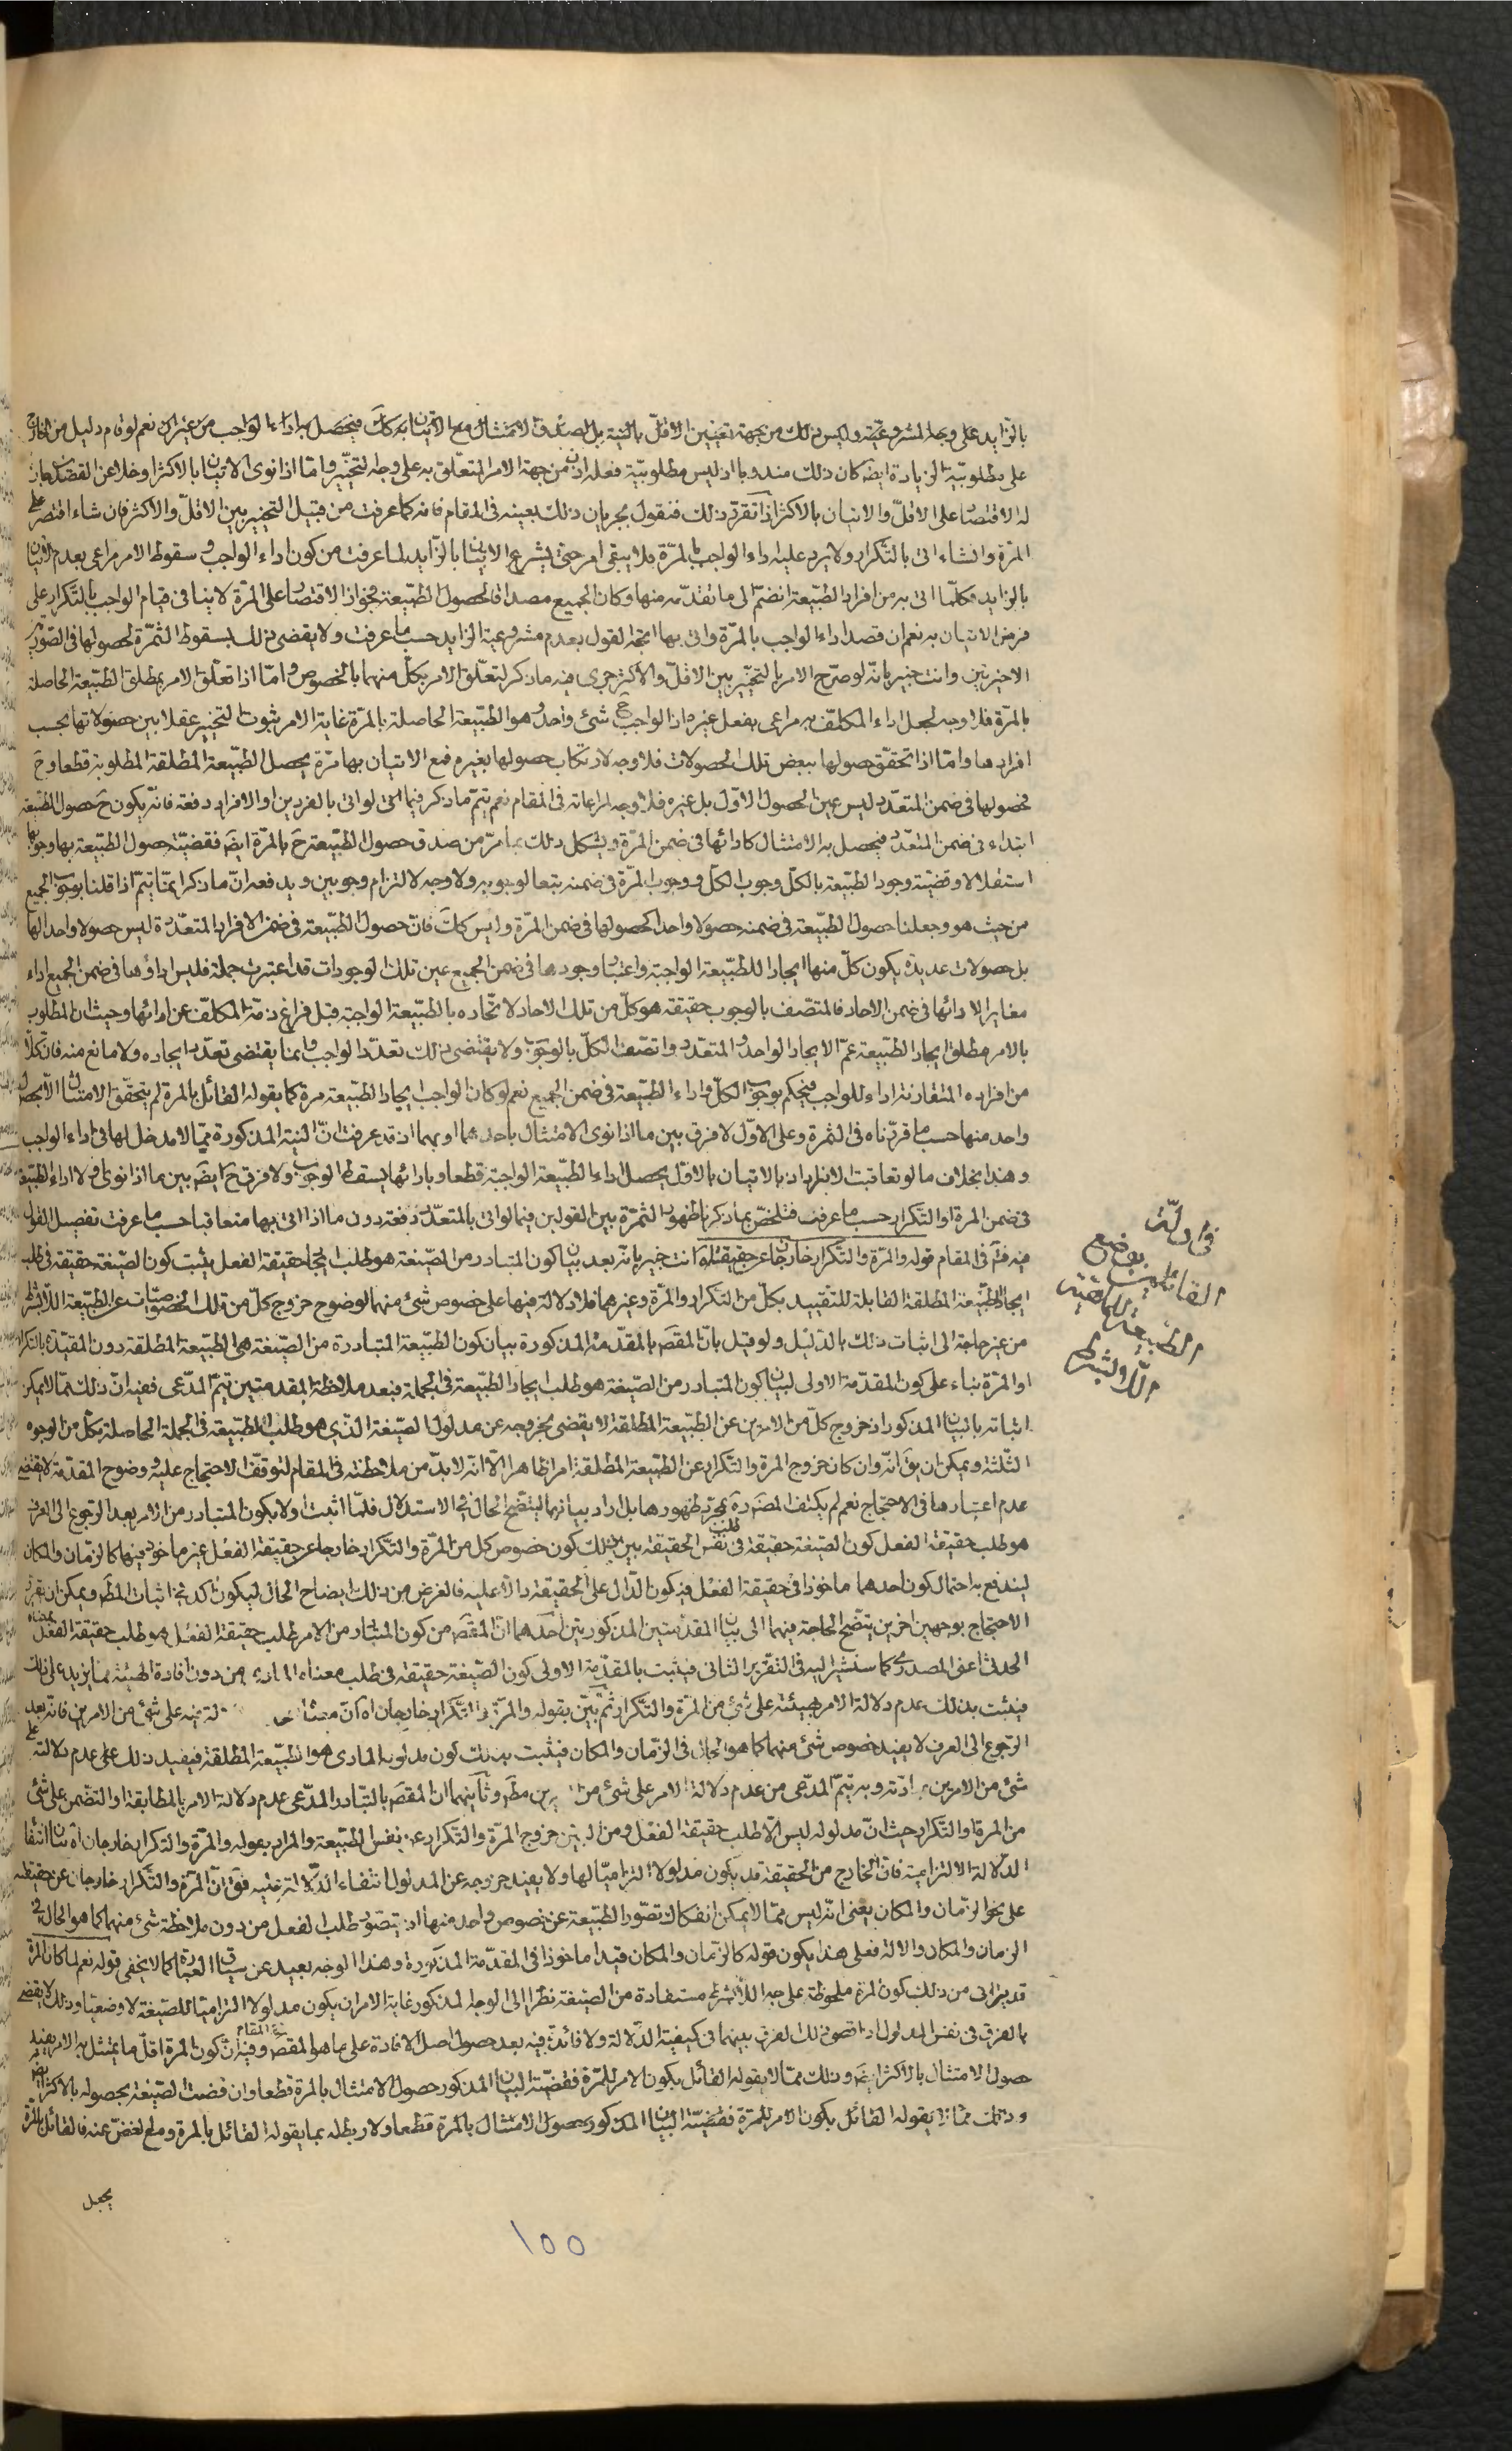 بالزايد على وجه المشروعية وليس ذلك من جهة تعيين الاقل بالنية بل لصدق الامتثال مع الاتيان به كك فيحصل به اداء الواجب من غير اثم نعم لو قام دليل من الخارج
على مطلوبية الزيادة ايضا كان ذلك مندوبا اذ ليس مطلوبية فعله اذن من جهة الامر المتعلق به على وجه التخيير واما اذا نوى الاتيان بالاكثر او خلا عن القصدين جاز
له الاقتصار على الاقل والاتيان بالاكثر اذا تقرر ذلك فنقول بجريان ذلك بعينه في المقام فانه كما عرفت من قبيل التخيير بين الاقل والاكثر فان شاء اقتصر على
المرة وان شاء اتى بالتكرار ولا يرد عليه اداء الواجب بالمرة فلا يبقى امر حتى يشرع الاتيان بالزايد لما عرفت من كون اداء الواجب وسقوط الامر مراعى بعدم الاتيان
بالزايد فكلما اتى به من افراد الطبيعة انضم الى ما تقدمه منها وكان الجميع مصداقا لحصول الطبيعة فجواز الاقتصار على المرة لا ينافى قيام الواجب بالتكرار على
فرض الاتيان به نعم ان قصد اداء الواجب بالمرة واتى بها اتجه القول بعدم مشروعية الزايد حسب ما عرفت ولا يقضى ذلك بسقوط الثمرة لحصولها في الصورتين
الاخيرتين وانت خبير بانه لو صرح الامر بالتخيير بين الاقل والاكثر جرى فيه ما ذكر لتعلق الامر بكل منهما بالخصوص واما اذا تعلق الامر بمطلق الطبيعة الحاصلة
بالمرة فلا وجه لجعل اداء المكلف به مراعى بفعل غيره اذ الواجب ح شئ واحد وهو الطبيعة الحاصلة بالمرة غاية الامر ثبوت التخيير عقلا بين حصولاتها بحسب
افرادها واما اذا تحقق حصولها ببعض تلك الحصولات فلا وجه لارتكاب حصولها بغيره فمع الاتيان بها مرة يحصل الطبيعة المطلقة المطلوبة قطعا وح
فحصولها في ضمن المتعدد ليس عين الحصول الاول بل غيره فلا وجه لمراعاته في المقام نعم يتم ما ذكر فيما لو اتى بالفردين او الافراد دفعة فانه يكون ح حصول الطبيعة
ابتداء في ضمن المتعدد فيحصل به الامتثال كادائها في ضمن المرة ويشكل ذلك بما مر من صدق حصول الطبيعة ح بالمرة ايضا فقضية حصول الطبيعة بها وجوبها
استقلالا وقضية وجود الطبيعة بالكل وجوب الكل ووجوب المرة في ضمنه بتعا لوجوبه ولا وجه لالتزام وجوبين ويدفعه ان ما ذكر انما يتم اذا قلنا بوجوب الجميع
من حيث هو وجعلنا حصول الطبيعة في ضمنه حصولا واحدا كحصولها في ضمن المرة وليس كك فان حصول الطبيعة في ضمن الافراد المتعددة ليس حصولا واحدا لها
بل حصولات عديدة يكون كل منها ايجادا للطبيعة الواجبة واعتبار وجودها في ضمن الجميع عين تلك الوجودات قد اعتبرت جملة فليس اداؤها في ضمن الجميع اداء
مغايرا لادائها في ضمن الاحاد فالمتصف بالوجوب حقيقة هو كل من تلك الاحاد لاتحاده بالطبيعة الواجبة قبل فراغ ذمة المكلف عن ادائها وحيث ان المطلوب
بالامر مطلق ايجاد الطبيعة عم الايجاد الواحد والمتعدد واتصف الكل بالوجوب ولا يقتضى ذلك تعدد الواجب وانما يقتضى تعدد ايجاده ولا مانع منه فان كلا
من افراده المتقارنة اداء للواجب فيحكم بوجوب الكل واداء الطبيعة في ضمن الجميع نعم لو كان الواجب ايجاد الطبيعة مرة كما يقوله القائل بالمرة لم يتحقق الامتثال الا بحصول
واحد منها حسب ما قررناه في الثمرة وعلى الاول لا فرق بين ما اذا نوى الامتثال باحدهما او بهما اذ قد عرفت ان النية المذكورة مما لا مدخل لها في اداء الواجب
وهذا بخلاف ما لو تعاقبت الافراد اذ بالاتيان بالاول يحصل اداء الطبيعة الواجبة قطعا وبادائها يسقط الوجوب ولا فرق ح ايضا بين ما اذا نوى اولا اداء الطبيعة
في ضمن المرة او التكرار حسب ما عرفت فتلخص بما ذكرنا ظهور الثمرة بين القولين فيما لو اتى بالمتعدد دفعة دون ما اذا اتى بها متعاقبا حسب ما عرفت تفصيل القول
فيه فت في المقام قوله والمرة والتكرار خارجان عن حقيقته اه انت خبير بانه بعد بيان كون المتبادر من الصيغة هو طلب ايجاد حقيقة الفعل يثبت كون الصيغة حقيقة في طلب
ايجاد الطبيعة المطلقة القابلة للتقييد بكل من التكرار والمرة وغيرهما فلا دلالة فيها على خصوص شئ منهما لوضوح خروج كل من تلك الخصوصيات عن الطبيعة اللا بشرط
من غير حاجة الى اثبات ذلك بالدليل ولو قيل بان المقصد بالمقدمة المذكورة بيان كون الطبيعة المتبادرة من الصيغة هي الطبيعة المطلقة دون المقيدة بالتكرار
او المرة بناء على كون المقدمة الاولى لبيان كون المتبادر من الصيغة هو طلب ايجاد الطبيعة في الجملة فبعد ملاحظة المقدمتين يتم المدعى ففيه ان ذلك مما لا يمكن
اثباته بالبيان المذكور اذ خروج كل من الامرين عن الطبيعة المطلقة لا يقضى بخروجه عن مدلول الصيغة الذي هو طلب الطبيعة في الجملة الحاصلة بكل من الوجوه
الثلثة ويمكن ان يق انه وان كان خروج المرة والتكرار عن الطبيعة المطلقة امرا ظاهرا الا انه لا بد من ملاحظته في المقام لتوقف الاحتجاج عليه ووضوح المقدمة لا يقضى
عدم اعتبارها في الاحتجاج نعم لم يكتف المص ره بمجرد ظهورها بل اراد بيانها ليتضح الحال في الاستدلال فلما اثبت اولا بكون المتبادر من الامر بعد الرجوع الى العرف
هو طلب حقيقة الفعل كون الصيغة حقيقة في طلب نفس الحقيقة بين بذلك كون خصوص كل من المرة والتكرار خارجا عن حقيقة الفعل غير ماخوذ فيها كالزمان والمكان
ليندفع به احتمال كون احدهما ماخوذا في حقيقة الفعل فيكون الدال على الحقيقة دالا عليه فالغرض من ذلك ايضاح الحال ليكون اكد في اثبات المط ويمكن ان يقرر
الاحتجاج بوجهين اخرين يتضح الحاجة فيهما الى بيان المقدمتين المذكورتين احدهما ان المقصد من كون المتبادر من الامر طلب حقيقة الفعل هو طلب حقيقة الفعل بمعناه
الحدثى اعنى المصدرى كما سنشير اليه في التقرير الثانى فيثبت بالمقدمة الاولى كون الصيغة حقيقة في طلب معناه المادى من دون افادة الهيئة لما يزيد على ذلك
فيثبت بذلك عدم دلالة الامر بهيئته على شئ من المرة والتكرار ثم بين بقوله والمرة والتكرار خارجان اه ان على شئ من الامرين فانه بعد
الرجوع الى العرف لا يفيد خصوص شئ منهما كما هو الحال في الزمان والمكان فيثبت بذلك كون مدلوله المادى هو الطبيعة المطلقة فيفيد ذلك عدم دلالته على
شئ من الامرين بمادته وبه يتم المدعى من عدم دلالة الامر على شئ من الامرين مط وثانيهما ان المقصد بالتبادر المدعى عدم دلالة الامر بالمطابقة او التضمن على شئ
من المرة او التكرار حيث ان مدلوله ليس الا طلب حقيقة الفعل ومن البين خروج المرة والتكرار عن نفس الطبيعة والمراد بقوله والمرة والتكرار خارجان اه بيان انتفاء
الدلالة الالتزامية فان الخارج من الحقيقة قد يكون مدلولا التزاميا لها ولا يفيد خروجه عن المدلول انتفاء الدلالة عليه فق ان المرة والتكرار خارجان عن حقيقته
على نحو الزمان والمكان يعنى انه ليس مما لا يمكن انفكاك تصور الطبيعة عن خصوص واحد منها اذ يتصور طلب الفعل من دون ملاحظة شئ منهما كما هو الحال في
الزمان والمكان والالة فعلى هذا يكون قوله كالزمان والمكان قيدا ماخوذا في المقدمة المذكورة وهذا الوجه بعيد عن سياق العبارة كما لا يخفى قوله نعم لما كان المرة
قد يترائى من ذلك كون المرة ملحوظة على وجه اللا بشرط مستفادة من الصيغة نظرا الى الوجه المذكور غاية الامر ان يكون مدلولا التزاميا للصيغة لا وضعيا وذلك لا يقضى
بالفرق في نفس المدلول اذ اقصى ذلك الفرق بينهما في كيفية الدلالة ولا فائدة فيه بعد حصول اصل الافادة على ما هو المقصد في المقام وفيه ان كون المرة اقل ما يمتثل به الامر يفيد
حصول الامتثال بالاكثر ايضا وذلك مما لا يقوله القائل بكون الامر للمرة فقضية البيان المذكور حصول الامتثال بالمرة قطعا وان قضت الصيغة بحصوله بالاكثر ايضا
وذلك مما لا يقوله القائل بكون الامر للمرة فقضية البيان المذكور حصول الامتثال بالمرة قطعا ولا ربط له بما يقوله القائل بالمرة ومع الغض عنه فالقائل بالمرة
يجعل
في ادلة
القائلين بوضع
الطبيعة للماهية
اللا بشرط
١٥٥